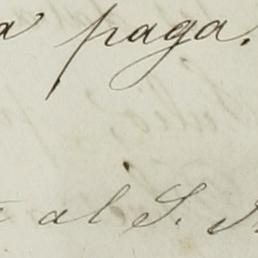 a paga.
al S.